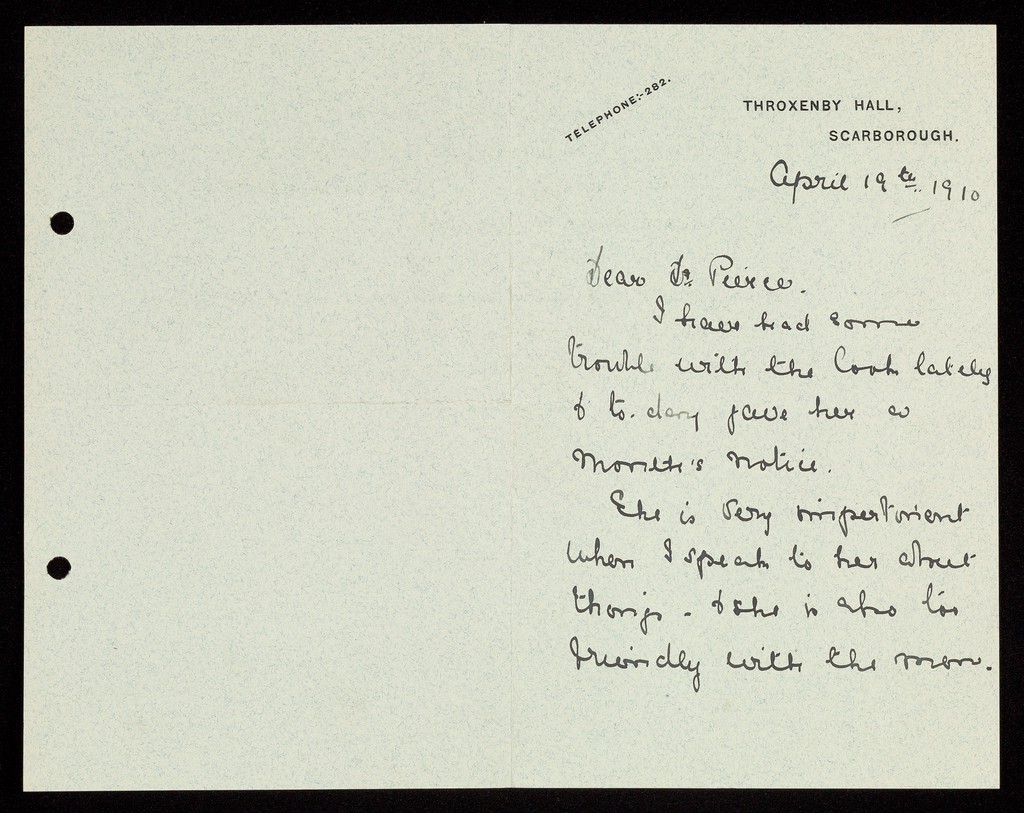 TELEPHONE:-282.
THROXENBY HALL,
SCARBOROUGH.
April 19th 1910
Dear Dr Pierce.
I have had some
trouble with the Cook lately
& to-day gave her a
month's notice.
She is very impertinent
when I speak to her about
things - & she is also too
friendly with the men.